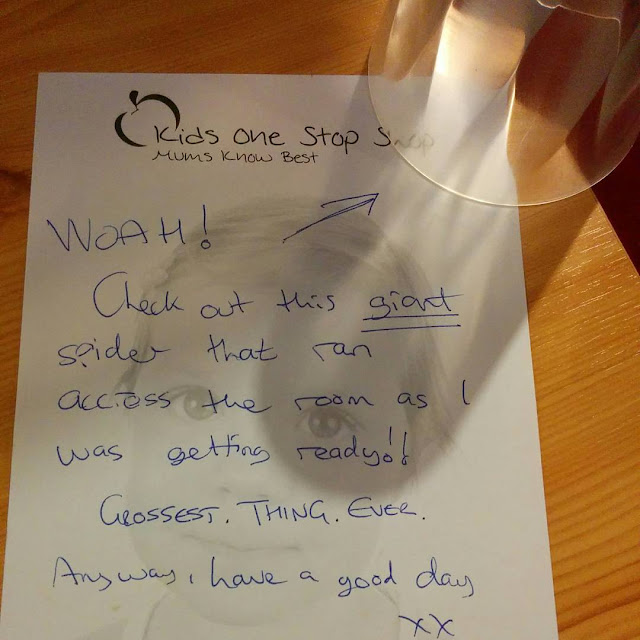 Kids One Stop Shop
Mums Know Best
WOAH!
Check out this giant
spider that ran
across the room as I
was getting ready!!
GROSSEST. THING. EVER.
Anyway, have a good day
xx